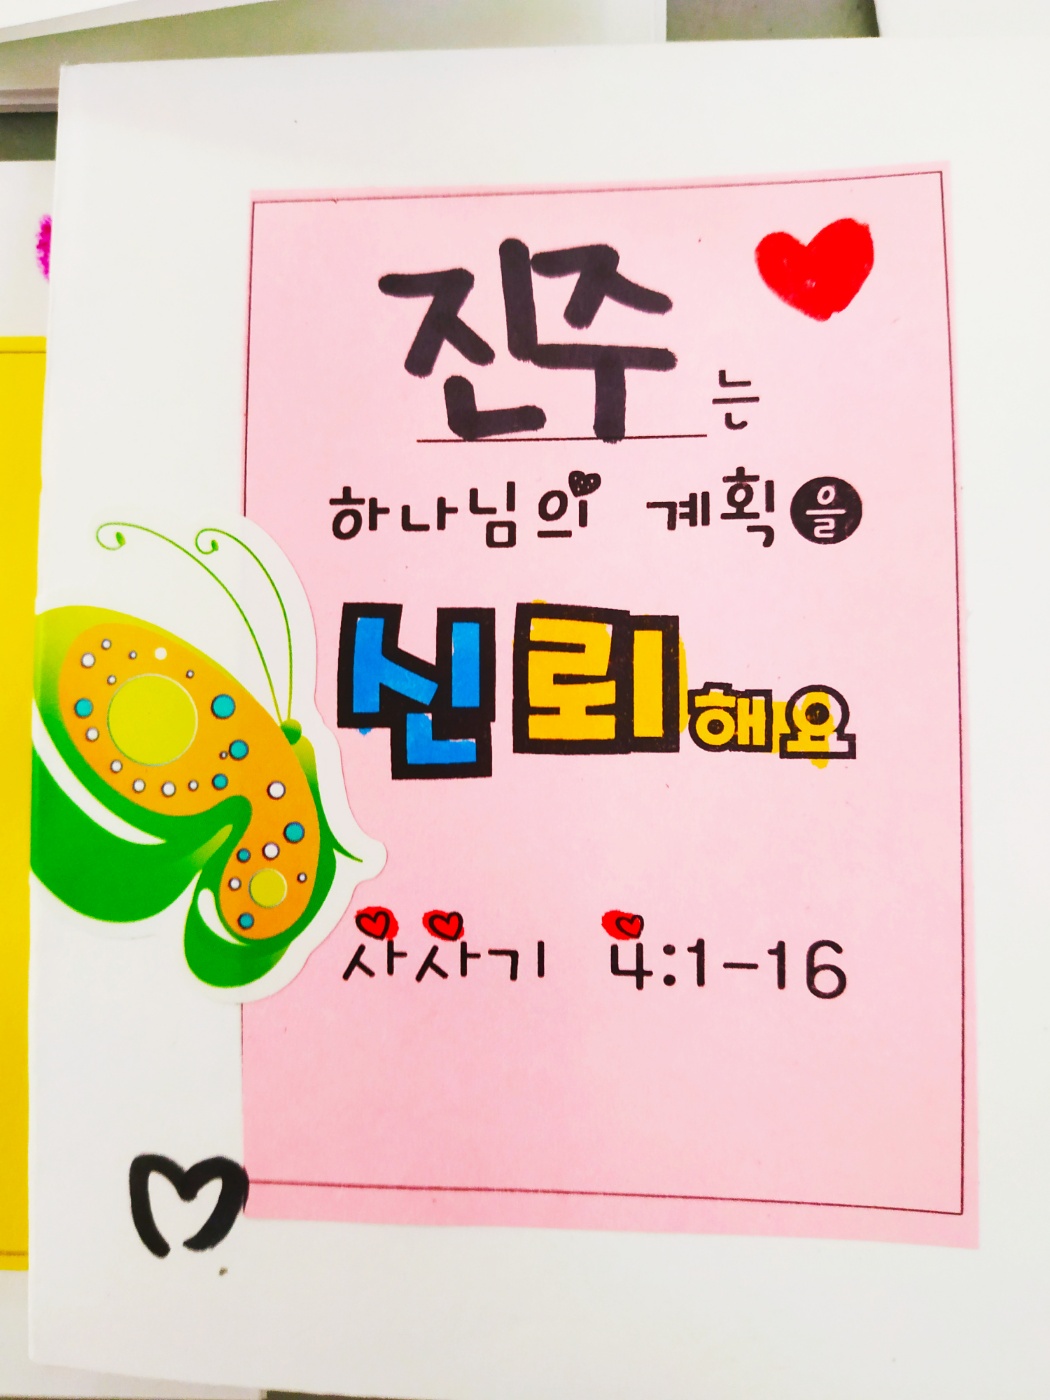 진주는
하나님의 계획을
신뢰해요
사사기 4:1-16